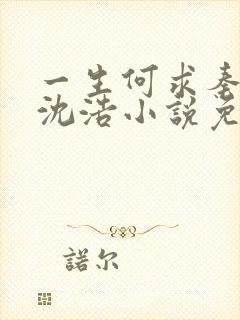 一生何求秦
沈浩小說免
諾尔